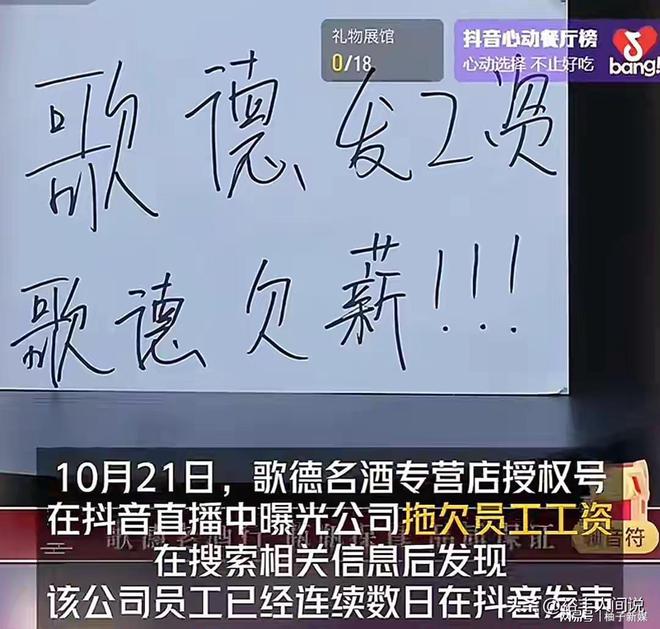 礼物展馆
0/18
抖音心动餐厅榜
心动选择 不止好吃
bang!
歌德发工资
歌德欠薪!!!
10月21日，歌德名酒专营店授权号
在抖音直播中曝光公司拖欠员工工资
在搜索相关信息后发现
该公司员工已经连续数日在抖音发声
网易号 | 柚子新媒